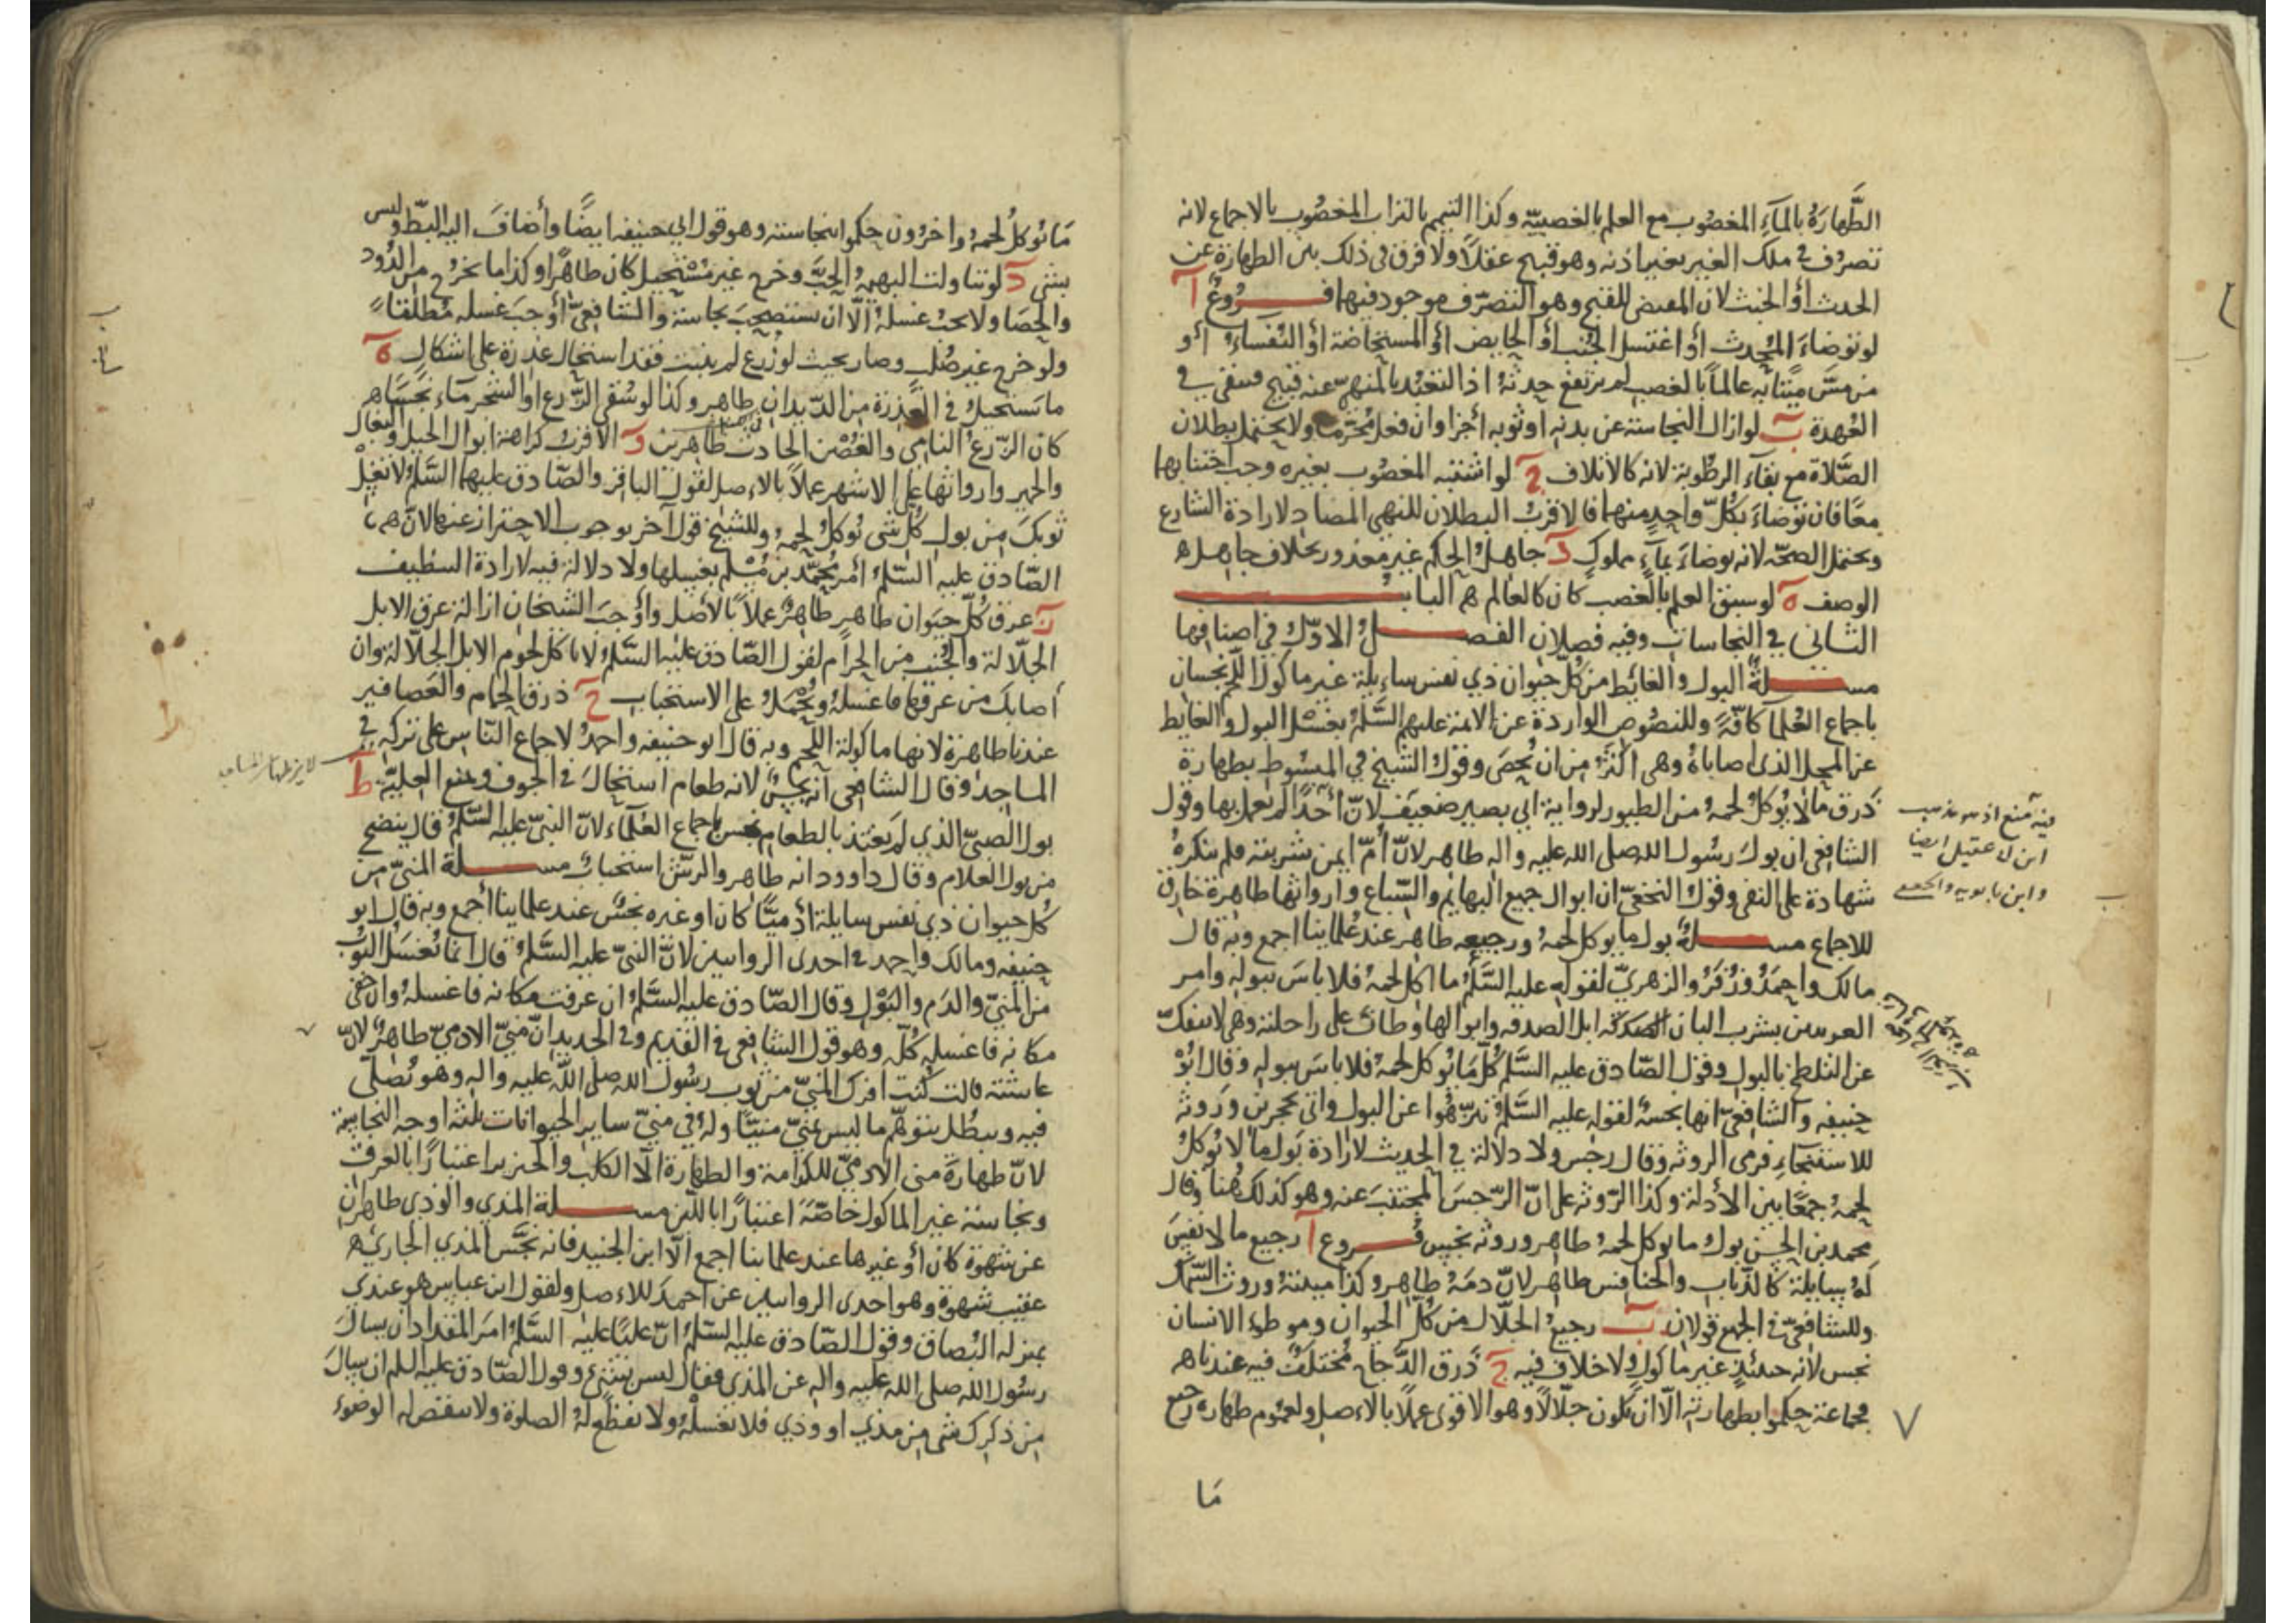 الطَّهارَةُ بالمآءِ المغصُوب مع العلم بالغصبيّة وكذا التيمم بالتراب المغصُوب بالاجماع لانه
تصرُف في ملك الغير بغير اذنه وهو قبيح عقلاً ولا فرق في ذلك بين الطهارة عن
الحدث أو الخبث لان المقتضى للقبح وهو التصرّف موجود فيهما فـــروعٌ آ
لو توضاءَ المُحدث أو اغتسل الجُنُب أو الحايض أو المستحاضة أو النُفساءُ أو
من مسَّ ميّتا به عالماً بالغصب لم يرتفع حدثهُ اذ التعبّد بالمنهيّ عنه قبيح فيبقى في
العُهدة ب لو ازال النجاسة عن بدنه او ثوبه أجزا وان فعل مُحَرَّمًا ولا يحتمل بطلان
الصّلاة مع بقآء الرطُوبة لانه كالاتلاف ج لو اشتبه المغصُوب بغيره وجب اجتنابهما
معًا فان توضاءَ بكلّ واحدٍ منهما فالاقربُ البطلان للنهي المضاد لارادة الشارع
ويحتمل الصحّه لانه توضاءَ بمآءٍ مملوكٍ د جاهلُ الحكم غير معذور بخلاف جاهل
الوصف ه لو سبق العلم بالغصب كان كالعالم البابُ
الثاني في النجاسات وفيه فصلان الفصـــلُ الاوّلُ في اصنافها
مســـلةٌ البول والغائط من كلّ حيوان ذي نفس سايلة غير ماكول اللّحم نجسان
باجماع العُلما كافّةً وللنصُوص الواردة عن الائمة عليهم السَّلمُ بغسْل البول والغايط
عن المحلّ الذي اصاباهُ وهي اكثرُ من ان تُحصَى وقول الشيخ في المبسُوط بطهارة
ذرق مالا يُوكلُ لحمهُ من الطيور لرواية ابي بصير ضعيف لانّ أحدًا لم يعمل بها وقول
الشافعي ان بولَ رسُول الله صلى الله عليه واله طاهر لانّ أمّ ايمن شربته فلم ينكرهُ
شهادة على النفى وقول النخعيّ ان ابوال جميع البهايم والسّباع وارواثها طاهرة خارق
للاجماع مســـلةٌ بول ما يوكل لحمهُ ورجيعه طاهر عند عُلمائنا اجمع وبه قال
مالك واحمدُ وزُفَرُ والزهريّ لقوله عليه السَّلمُ ما اكل لحمهُ فلا باسَ ببوله وامر
العرنيين بشرب البان ابل الصدقه وابوالها وطافَ على راحلته وهي لا تنفكّ
عن التلطخ بالبول وقول الصّادق عليه السَّلم كُلّ مَا يُوكل لحمهُ فلا باسَ ببوله وقال ابُوْ
حنيفه والشافعيّ انها نجسةٌ لقوله عليه السَّلمُ تنزّهُوا عن البول واتى بحجرين وَرَوثه
للاستنجاءِ فرمى الروثه وقال رجس ولا دلالة في الحديث لارادة بَول ما لا يُوكلُ
لحمهُ جمعًا بين الأدلة وكذا الرّوثه على انّ الرّجسَ المجتنبَ عنه وهو كذلك هُنا وقال
محمد بن الحسن بولُ ما يوكل لحمهُ طاهر وروثه نجس فُـــروع آ رجيع ما لا نفسَ
لهُ سايلة كالذّباب والخنافس طاهر لانّ دمهُ طاهر وكذا ميتتهُ وروثُ السَّمك
وللشافعيّ في الجميع قولان ب رجيعُ الجلّال من كلّ الحيوان وموطوء الانسان
نجس لانه حينئذٍ غير ماكول ولا خلاف فيه ج ذرق الدَّجاج مُختلفٌ فيه عندنا
فجماعة حكموا بطهارته الّا ان يكون جلّالاً وهو الاقوى عملًا بالاءصل ولعُموم طهارة رجيع
مَا
فيه منع اذ هو مذهب
ابن ابي عقيل ايضا
وابن بابويه والجعفي
مَا يُوكلُ لحمهُ واخرُون حكموا بنجاسته وهو قول ابي حنيفه ايضًا وأضافَ اليه البَطّ وليس
بشى د لو تناولت البهيمةُ الحبَّ وخرج غير مُسْتحيل كان طاهرًا وكذا ما يخرُج من الدُود
والحصا ولا يجبُ غسلهُ الّا ان يستصحبَ نجاسة والشافعيُّ أوجَبَ غسله مُطلقاً
ولو خرج غير صُلب وصار بحيث لو زُرعَ لم ينبت فقد استحال عذِرة على اشكالٍ ه
ما تستحيلُ في العَذِرة من الدّيدان طاهر وكذا لو سُقي الزَّرع او الشجر مآءً نجسًا
كان الزّرعُ النامي والغُصْن الحادث طاهرين و الاقربُ كراهة ابوال الخيل والبغال
والحمير وارواثها على الاشهر عملاً بالاءصل لقول الباقر والصّادق عليهما السَّلمُ لا تغسِلْ
ثوبكَ من بول كُلّ شى يُوكلُ لحمهُ وللشيخ قول آخر بوجوب الاحتراز عنها لانّ
الصّادق عليه السَّلمُ أمر مُحمّد بن مُسْلم بغسلها ولا دلالة فيه لارادة التنظيف
ز عرق كلّ حيَوان طاهر طاهرٌ عملاً بالأصل وأوجبَ الشيخان ازالة عرق الابل
الجلّالة والجُنُب من الحرام لقول الصّادق عليه السَّلمُ لا تاكل لحُوم الابل الجلّالة وان
أصابكَ من عرقها فاغسلهُ ويُحْمَلُ على الاستحباب ح ذرق الحمام والعَصافير
عندنا طاهرة لانها ماكولة اللّحم وبه قال ابو حنيفه واحمدُ لاجماع النّاس على تركه في
المساجد وقال الشافعي انّه نجسٌ لانه طعام استحالَ في الجوف ومنع العليّة ط
بول الصبيّ الذي لم يَغتذ بالطعام نجس باجماع العُلمآءِ لانّ النبيّ عليه السَّلمُ قال ينضح
من بول الغلام وقال داوود انه طاهر والرشّ استحبابٌ مســـلة المنيّ من
كُل حيوان ذي نفس سايلة آدميّا كان او غيره نجسٌ عند علماينا أجمع وبه قال ابو
حنيفه ومالك واحمد في احدى الروايتين لانّ النبيّ عليه السَّلمُ قال انما تُغسَلُ الثوبُ
من المنيّ والدَم والبَوْل وقال الصّادق عليه السَّلمُ ان عرفت مكانه فاغسلهُ وان خفي
مكانه فاغسله كُلّه وهو قول الشافعي في القديم وفي الجديد انّ منيّ الادميّ طاهرٌ لانّ
عايشة قالت كُنت افركُ المنيّ من ثوب رسُول الله صلى الله عليه واله وهو يُصَلّى
فيه ويبطُل بتوهّم ما ليس بمنيّ منيًّا ولهُ في منيّ ساير الحيوانات ثلثة اوجه النجاسة
لانّ طهارة منى الادميّ للكرامة والطهارة الّا الكلب والخنزير اعتبارًا بالعرق
ونجاسة غير الماكول خاصّةً اعتبارًا باللّبن مســـلة المذي والوَذي طاهران
عن شهْوة كان أو غيرها عند علماينا اجمع الّا ابن الجنيد فانه نجَّسَ المذي الجاري
عقيب شهوة وهو احدى الروايتين عن احمدَ للاءصل ولقول ابن عباس هو عندى
بمنزلة البُصاق وقول الصّادق عليه السّلمُ انّ عليًا عليه السَّلمُ امَر المقداد ان يسالَ
رسُول الله صلى الله عليه واله عن المذى فقال ليس بشئ وقول الصّادق عليه السلم ان سالَ
من ذكرك شى من مذي او وذي فلا تغسلْهُ ولا تقطع لهُ الصلوة ولا تنقض له الوضوءَ